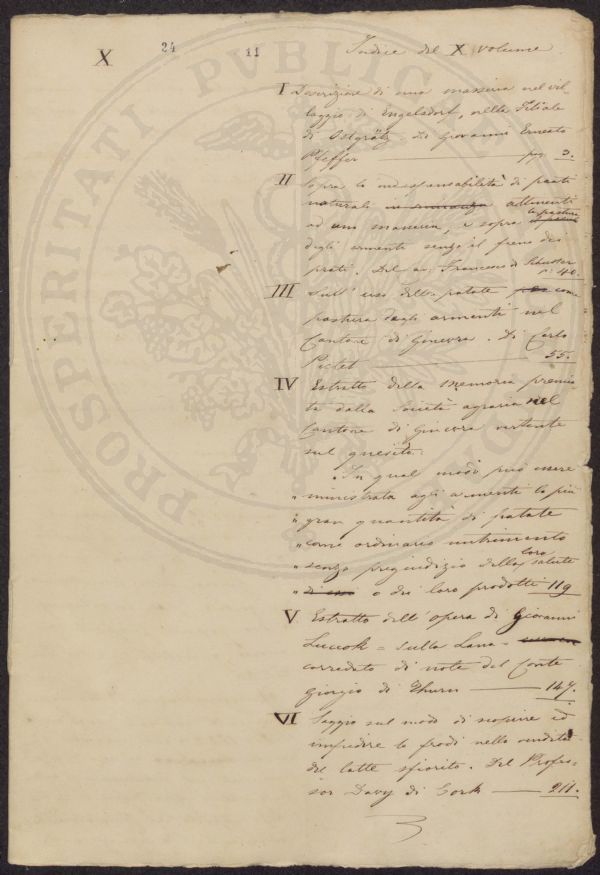 X
24
11
Indice del X volume.
I Descrizione di una masseria nel vil-
laggio di Engelsdorf, nella Filiale
di Ostgrätz. Di Giovanni Ernesto
Pfeffer pag. 3.
II Sopra la indispensabilità di prati
naturali in attinenti
ad una masseria, e sopra la pastura
degli armenti senza il fieno dei
prati. Del Francesco di Schuster
40.
III Sull' uso delle patate come
pastura degli armenti nel
Cantone di Ginevra. Di Carlo
Pictet 55.
IV Estratto della memoria premia-
ta dalla Società agraria nel
Cantone di Ginevra vertente
sul quesito.
„In qual modo può essere
„ministrata agli armenti la più
„gran quantità di patate
„come ordinario nutrimento
„senza pregiudizio della loro salute
„o dei loro prodotti 119
V Estratto dell' opera di Giovanni
Luccok = Sulla Lana =
corredato di note del Conte
Giorgio di Thurn 147.
VI Saggio sul modo di scoprire ed
impedire le frodi nella vendita
del latte sfiorito. Del Profes-
sor Davy di Cork 211.
PROSPERITATI PVBLICAE